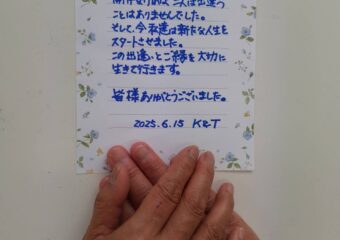 二人は出逢う
ことはありませんでした。
そして、今私達は新たな人生を
スタートさせました。
この出逢いとご縁を大切に
生きて行きます。
皆様ありがとうございました。
2025.6.15 K&T